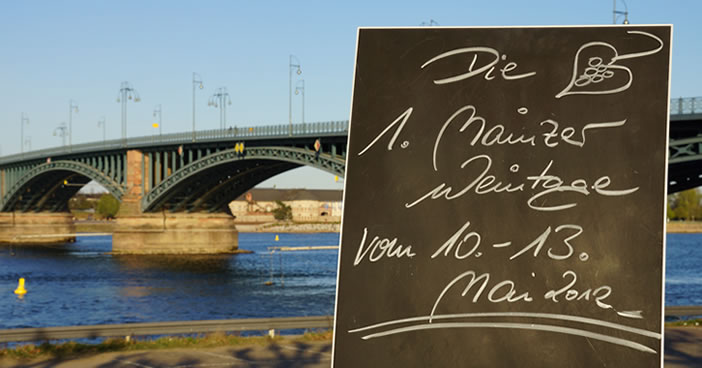 Die
1. Mainzer
Weintage
vom 10.-13.
Mai 2012